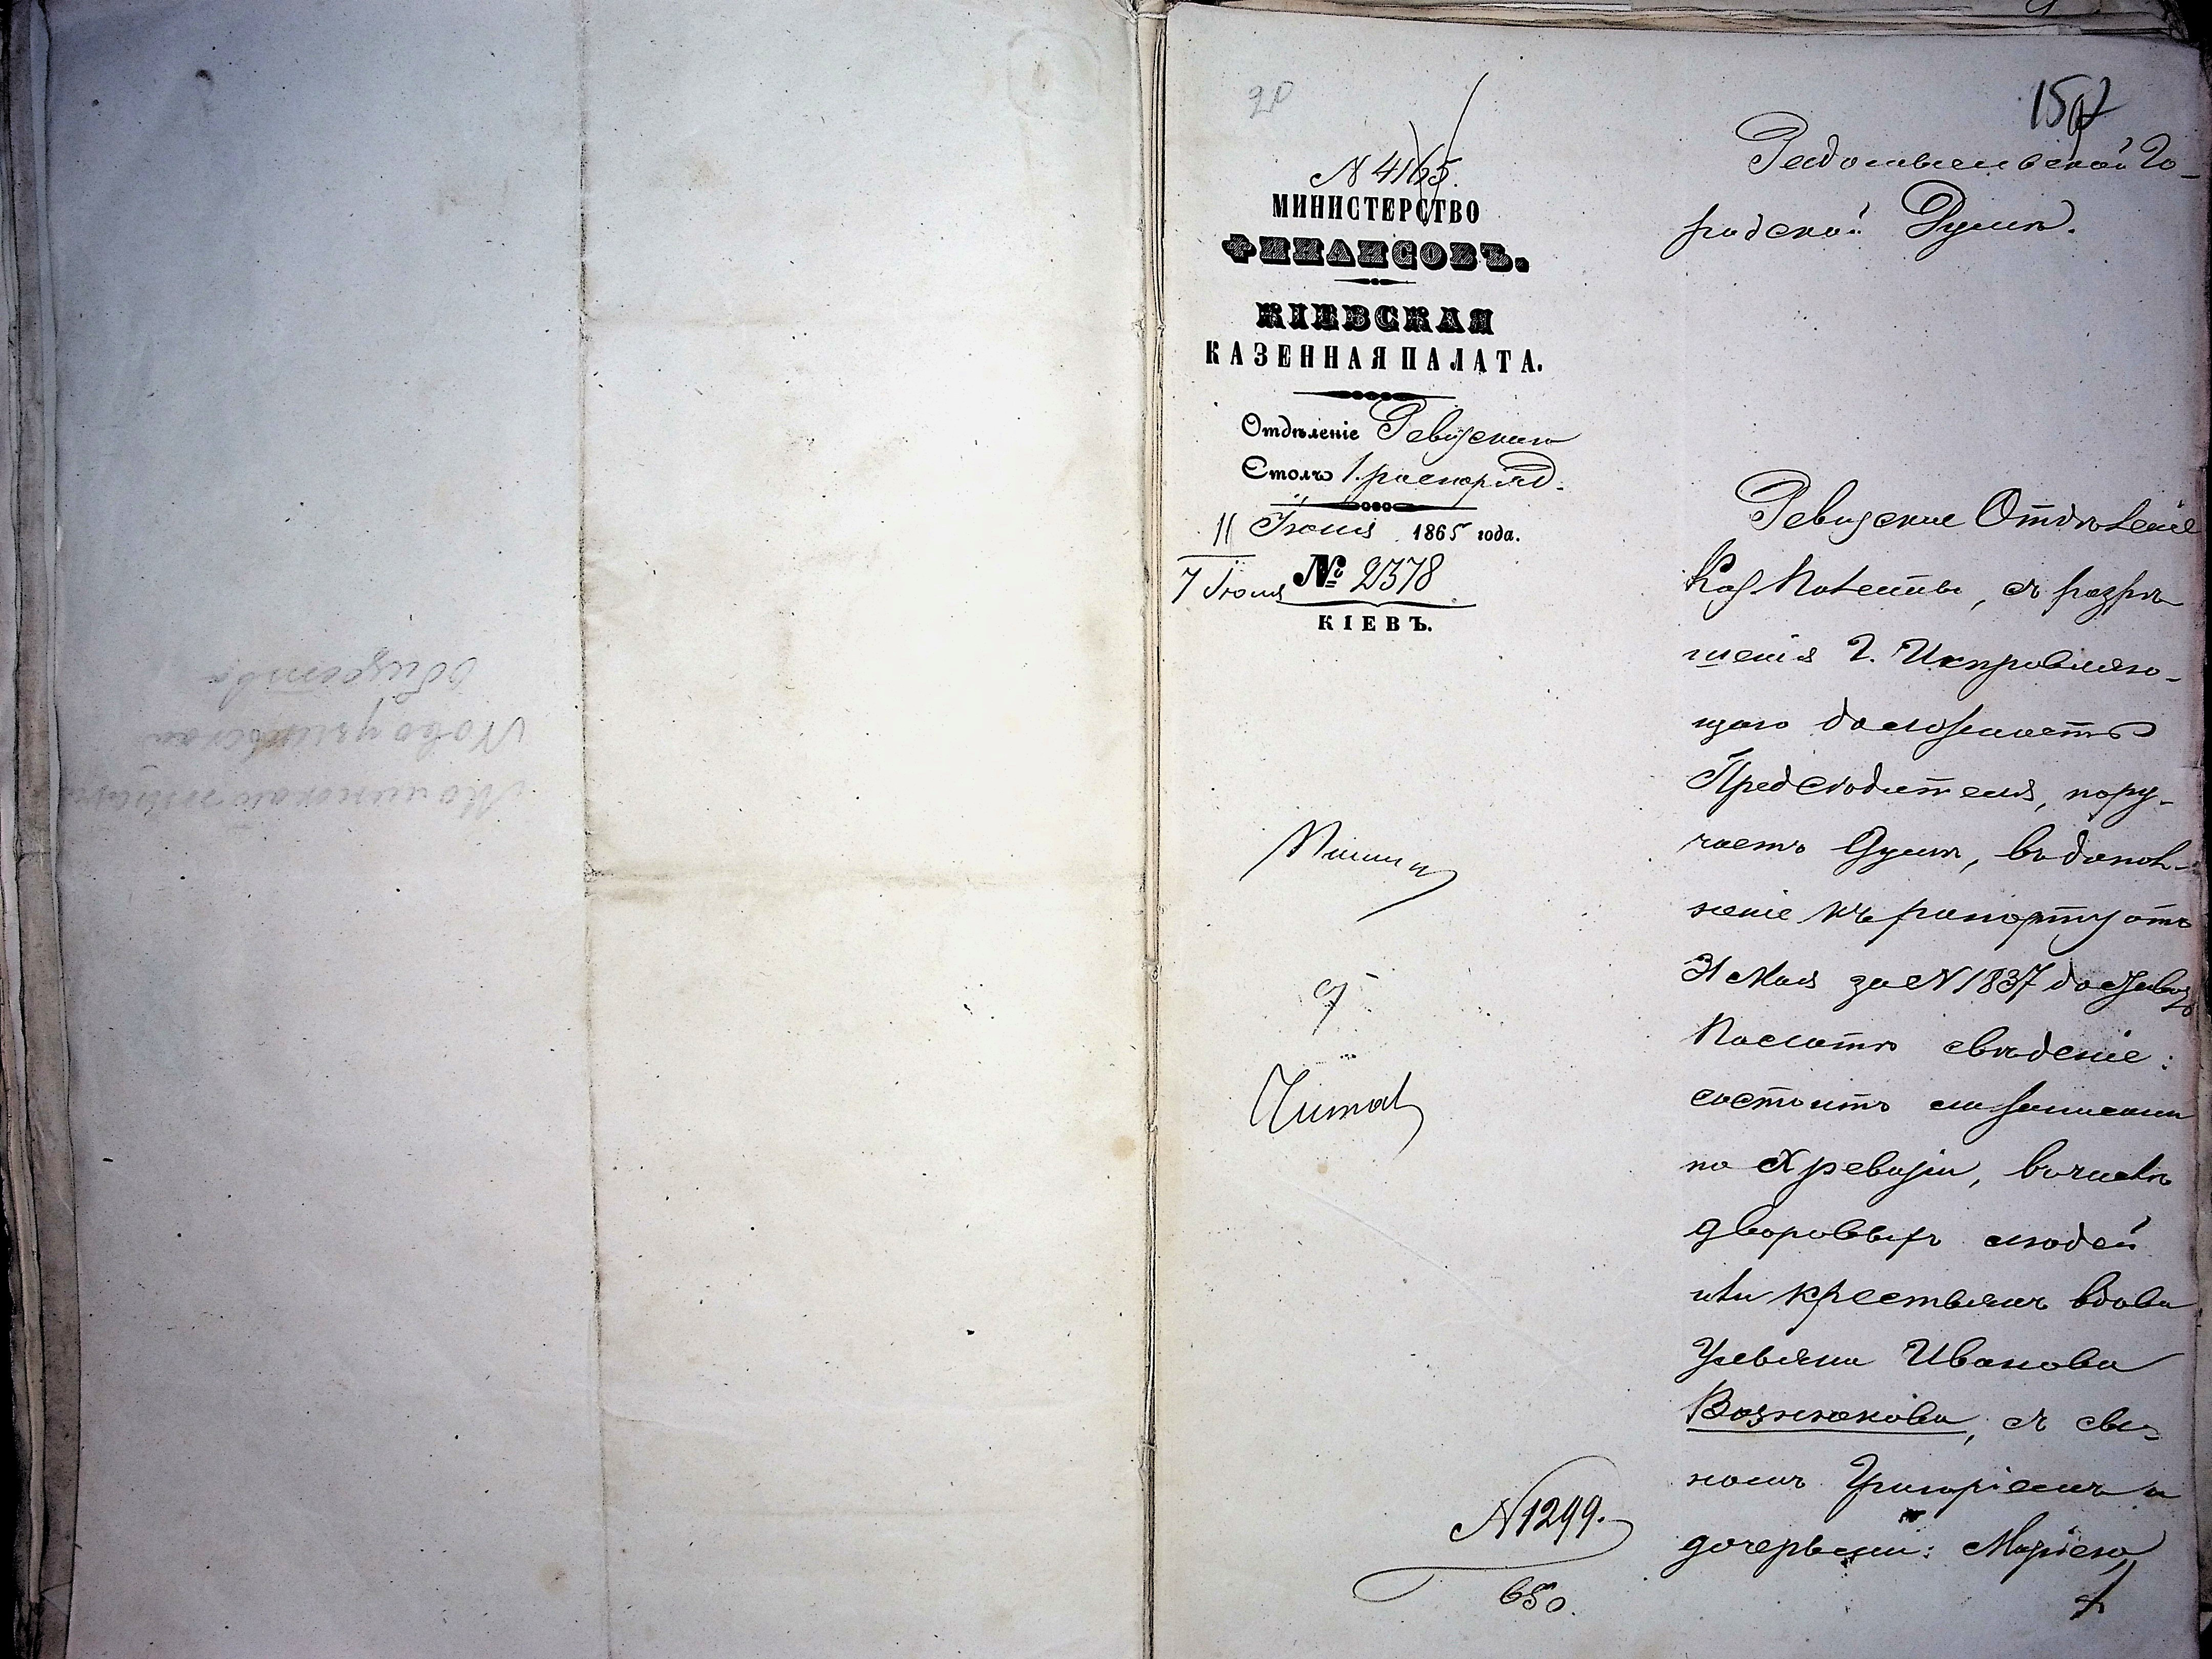 общества
20
157
N 4165.
МИНИСТЕРСТВО
ФИНАНСОВЪ.
КІЕВСКАЯ
КАЗЕННАЯ ПАЛАТА.
Отдѣленіе Ревизское
Столъ 1. распоряд.
11 Іюня 1865 года.
7 Іюня № 2378
КІЕВЪ.
Читал
N 1299.
650.
Радомысльской Го-
родской Думѣ.
Ревизское Отдѣленіе
Каз. Палаты, съ разрѣ
шенія Г. Исправляю-
щаго должность
Предсѣдателя, пору-
чаетъ Думѣ, въ допол-
неніе къ рапорту отъ
31 Мая за N 1837 доставить
Палатѣ свѣденіе:
состоитъ ли записан
по X ревизіи, въ числѣ
дворовыхъ людей
или крестьянъ вдова
Ульяна Иванова
Вознюкова, съ сы-
номъ Григоріемъ и
дочерьми: Маріею,